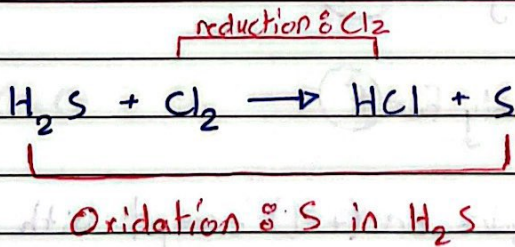 reduction : Cl2
H2S + Cl2 → HCl + S
Oxidation : S in H2S